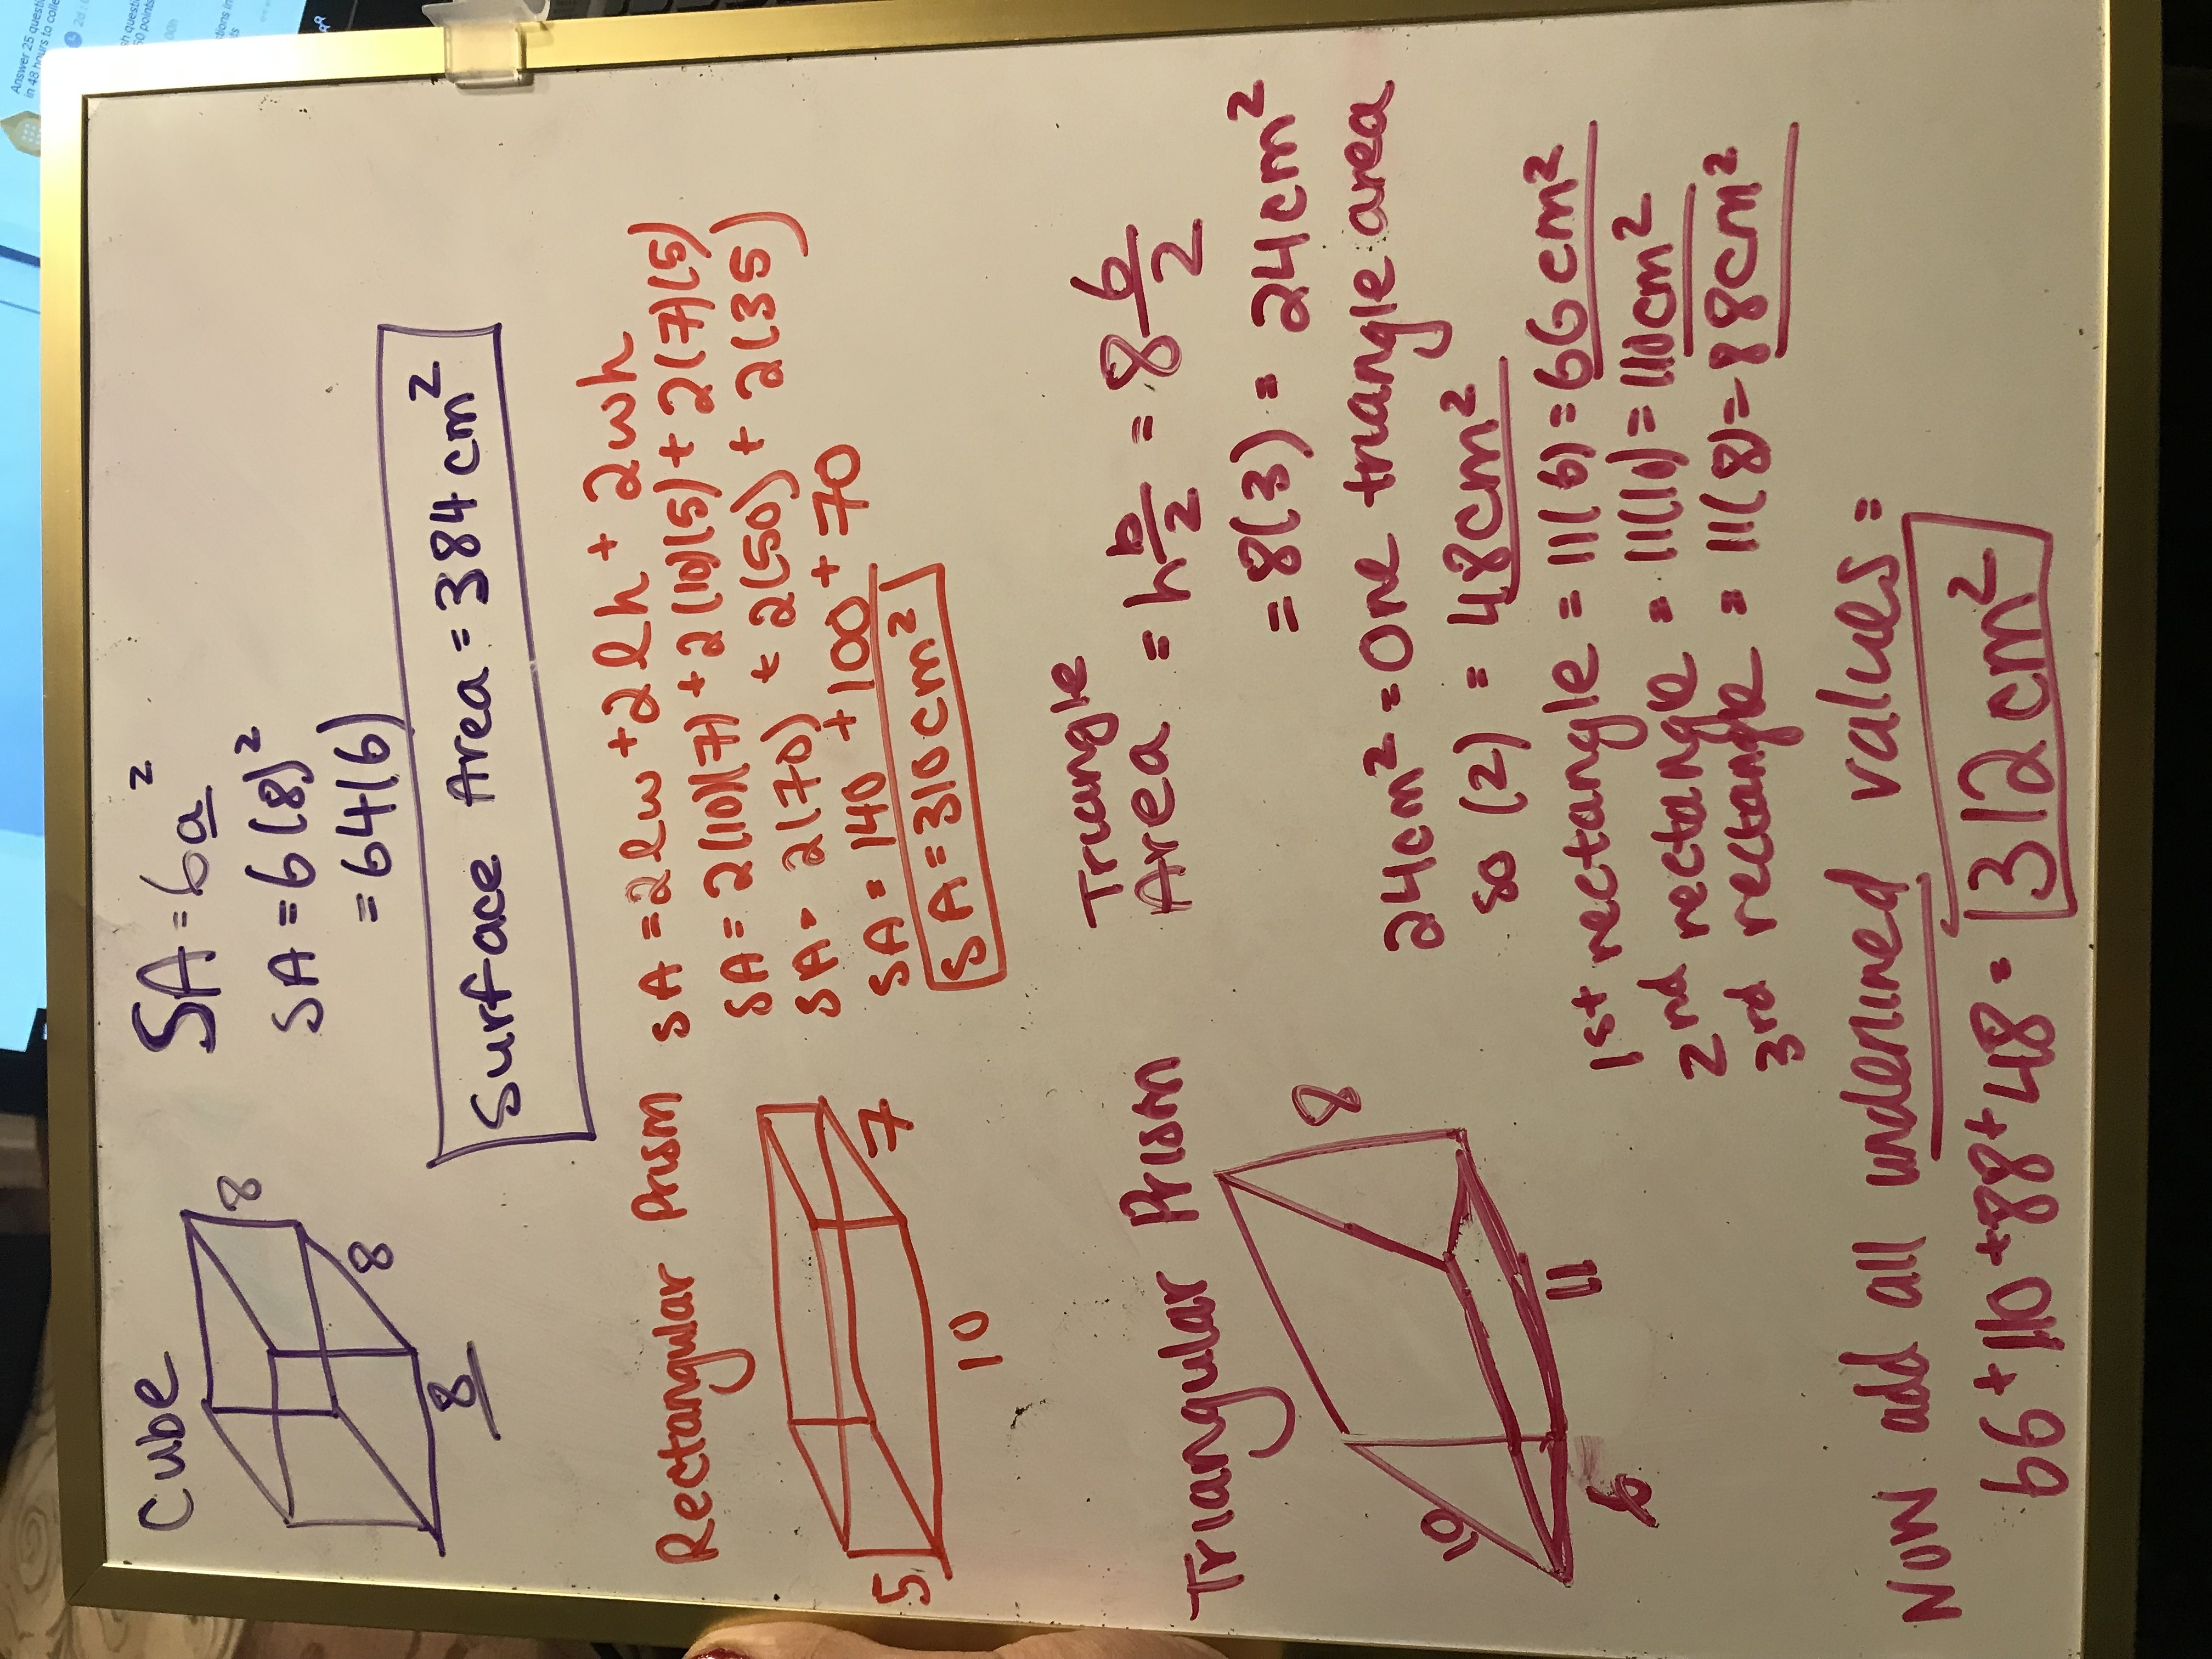 Cube
8
8
8
SA = 6a²
SA = 6(8)²
= 64(6)
Surface Area = 384cm²
Rectangular Prism
5
10
7
SA = 2lw + 2lh + 2wh
SA = 2(10)(7) + 2(10)(5) + 2(7)(5)
SA = 2(70) + 2(50) + 2(35)
SA = 140 + 100 + 70
SA = 310cm²
Triangular Prism
10
6
11
8
Triangle
Area = h b/2 = 8 6/2
= 8(3) = 24cm²
24cm² = One triangle area
so (2) = 48cm²
1st rectangle = 11(6) = 66cm²
2nd rectangle = 11(10) = 110cm²
3rd rectangle = 11(8) = 88cm²
Now add all underlined values =
66 + 110 + 88 + 48 = 312cm²
Answer 25 questi